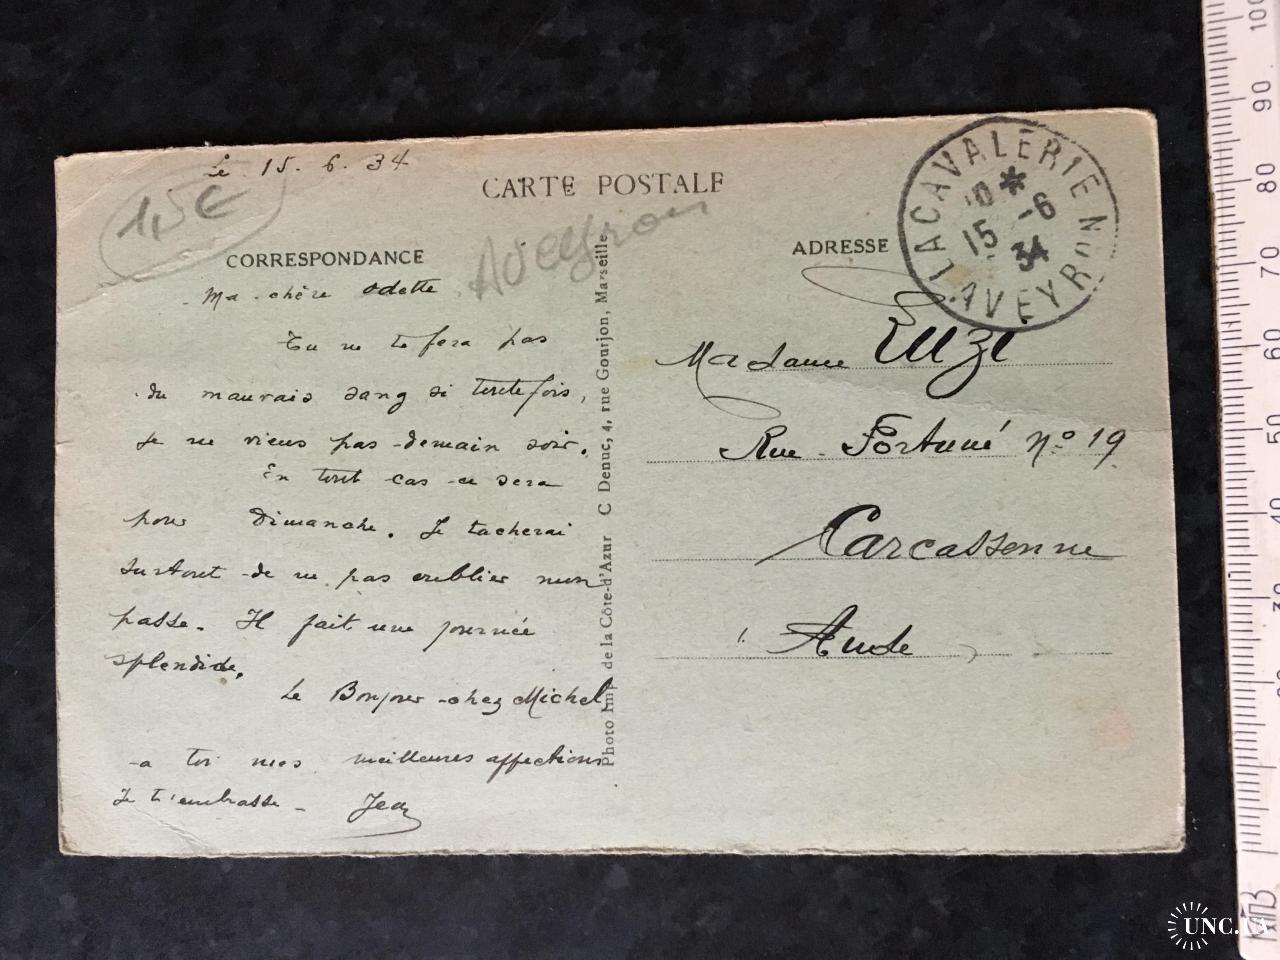 Le 15. 6. 34
1,5€
CARTE POSTALE
Aveyron
CORRESPONDANCE
Ma chère Odette
Tu ne te fera pas
du mauvais sang si toutefois,
je ne viens pas demain soir.
En tout cas ce sera
pour Dimanche. Je tacherai
surtout de ne pas oublier mon
passe. Il fait une journée
splendide.
Le Bonjour chez Michel
a toi mes meilleures affections
Je t'embrasse - Jean
Photo Imp. de la Côte-d'Azur C Denuc, 4, rue Gourjon, Marseille
ADRESSE
LACAVALERIE
10 *
15 -6
34
AVEYRON
Madame Euzé
Rue Fortuné No 19
Carcassonne
Aude
100
90
80
70
60
50
40
30
20
UNC.UA